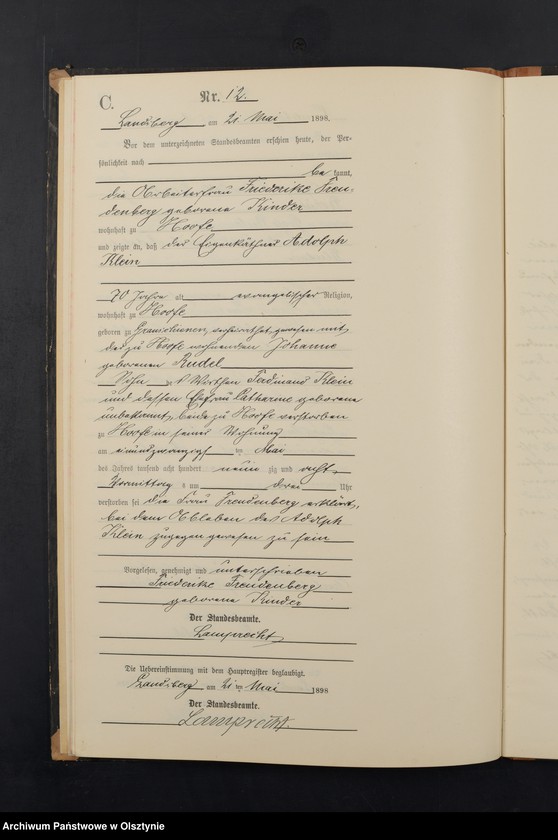 C.
Nr. 12.
Landsberg am 21 Mai 1898.
Vor dem unterzeichneten Standesbeamten erschien heute, der Per-
sönlichkeit nach
be kannt,
die Arbeiterfrau Friederike Freu-
denberg geborene Kinder
wohnhaft zu Hoofe
und zeigte an, daß der Eigenkäthner Adolph
Klein
70 Jahre alt evangelischer Religion,
wohnhaft zu Hoofe
geboren zu verheirathet gewesen mit
der zu Hoofe wohnenden Johanne
geborenen Rudel
Sohn des Ferdinand Klein
und dessen Ehefrau Catharine geborene
unbekannt, beide zu Hoofe verstorben
zu Hoofe in seiner Wohnung
am einundzwanzigsten Mai
des Jahres tausend acht hundert neun zig und acht
Vormittag s um drei Uhr
verstorben sei die Frau Freudenberg erklärt,
bei dem Ableben des Adolph
Klein zugegen gewesen zu sein
Vorgelesen, genehmigt und unterschrieben
Friederike Freudenberg
geborene Kinder
Der Standesbeamte.
Lamprecht
Die Uebereinstimmung mit dem Hauptregister beglaubigt.
Landsberg am 21 ten Mai 1898
Der Standesbeamte.
Lamprecht.
Archiwum Państwowe w Olsztynie